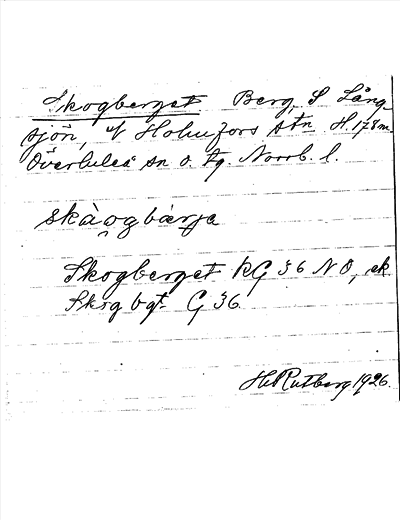 Skogberget Berg, S Lång-
sjön, v Holmfors stn H. 178 m.
Överluleå sn o. tg. Norrb. l.
skàogbàrje
Skogberget kG 36 NO, ek
Skog bgt G 36
H Rutberg 1926.